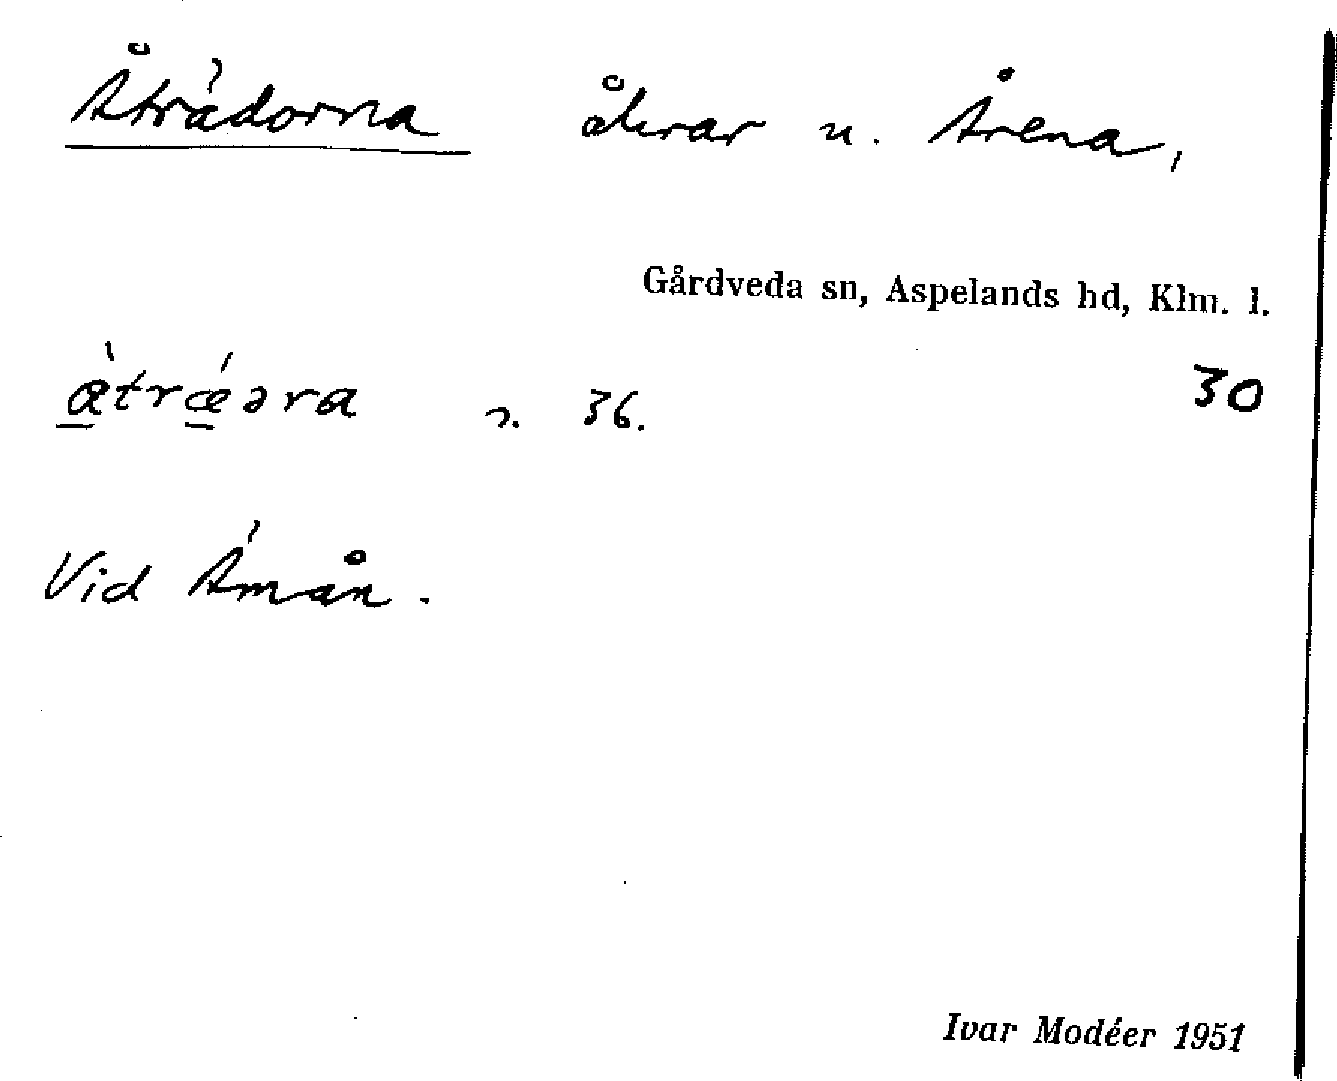 Åträdorna åkrar u. Årena,
Gårdveda sn, Aspelands hd, Klm. l.
àtrǽəra s. 36. 30
Vid Åmån.
Ivar Modéer 1951